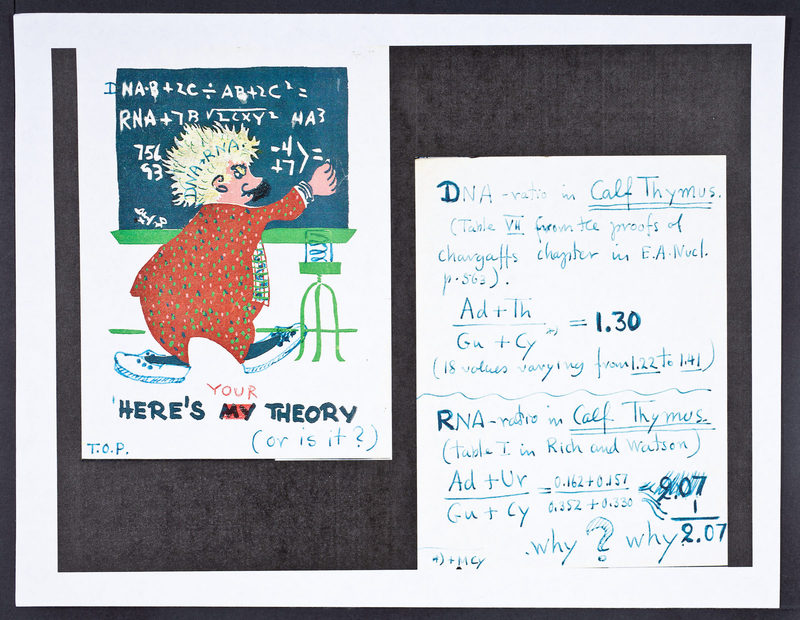 DNA·B+2C÷AB+2C²=
RNA+7B√2CXY² HA³
756
93
-4
+7 >=
DNA+RNA
YOUR
'HERE'S MY THEORY
(or is it?)
T.O.P.
DNA-ratio in Calf Thymus.
(Table VII from the proofs of
chargaffs chapter in E.A. Nucl.
p. 563).
Ad + Th
Gu + Cy *) = 1.30
(18 values varying from 1.22 to 1.41)
RNA-ratio in Calf Thymus.
(table I. in Rich and Watson)
Ad + Ur = 0.162+0.157
Gu + Cy 0.352+0.330
2.07
1
2.07
why ? why
*) + MCy